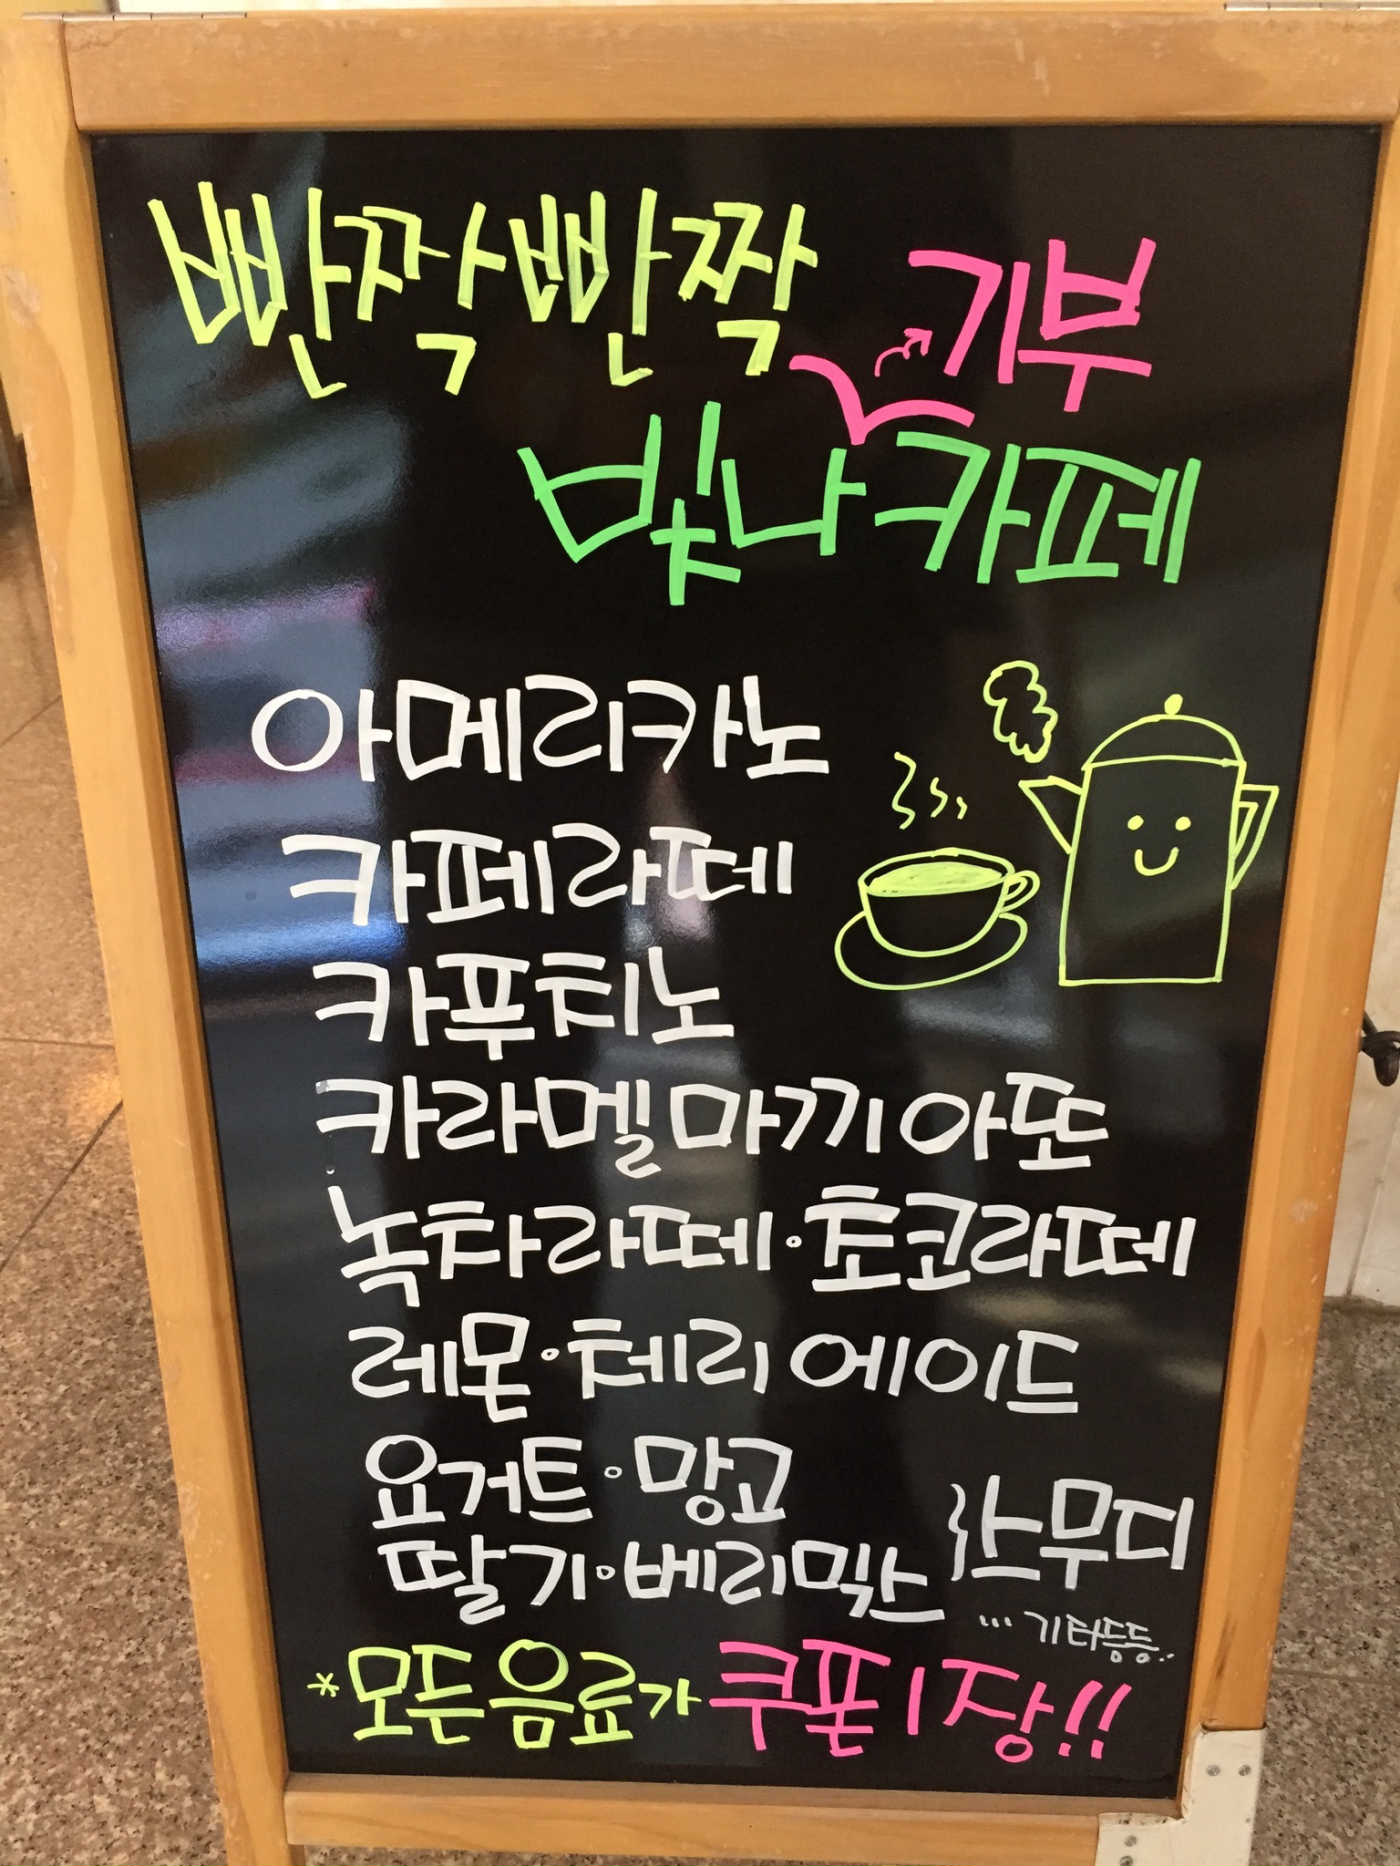 빤짝빤짝
기부
빛나카페
아메리카노
카페라떼
카푸치노
카라멜마끼아또
녹차라떼·초코라떼
레몬·체리에이드
요거트·망고
딸기·베리믹스 } 스무디
... 기타등등..
*모든음료가 쿠폰1장!!